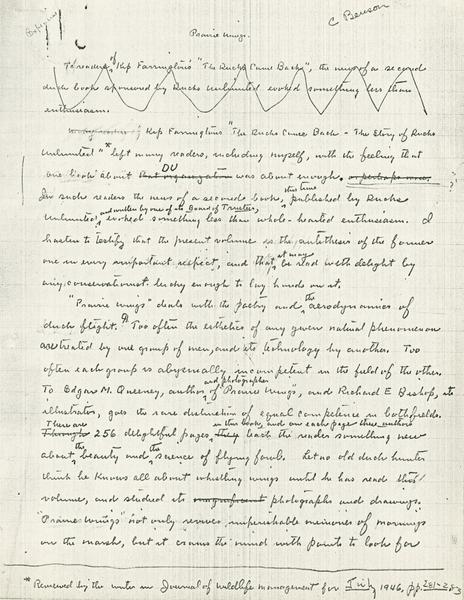 C Benson
Prairie Wings.
To readers of Kip Farrington's "The Ducks Came Back", the news of a second
duck book sponsored by Ducks Unlimited evoked something less than
enthusiasm.
Kip Farrington's "The Ducks Came Back - The Story of Ducks
Unlimited"* left many readers, including myself, with the feeling that
one 'book' about that organization DU was about enough, or perhaps more.
In such readers the news of a second book, this time published by Ducks
Unlimited, and written by one of its Board of Trustees, evoked something less than whole-hearted enthusiasm. I
hasten to testify that the present volume is the antithesis of the former
one in every important respect, and that it may be read with delight by
any conservationist lucky enough to lay hands on it.
"Prairie Wings" deals with the poetry and the aerodynamics of
duck flight. Too often the esthetics of any given natural phenomenon
are treated by one group of men, and its technology by another. Too
often each group is abysmally incompetent in the field of the other.
To Edgar M. Queeney, author and photographer of "Prairie Wings", and Richard E. Bishop, its
illustrator, goes the rare distinction of equal competence in both fields.
There are
Through 256 delightful pages in this book, and on each page these authors they teach the reader something new
about the beauty and the science of flying fowl. Let no old duck hunter
think he knows all about whistling wings until he has read this
volume, and studied its magnificent photographs and drawings.
"Prairie Wings" not only revives imperishable memories of mornings
on the marsh, but it crams the mind with points to look for
* Reviewed by the writer in Journal of Wildlife Management for July 1946, pp. 281-283